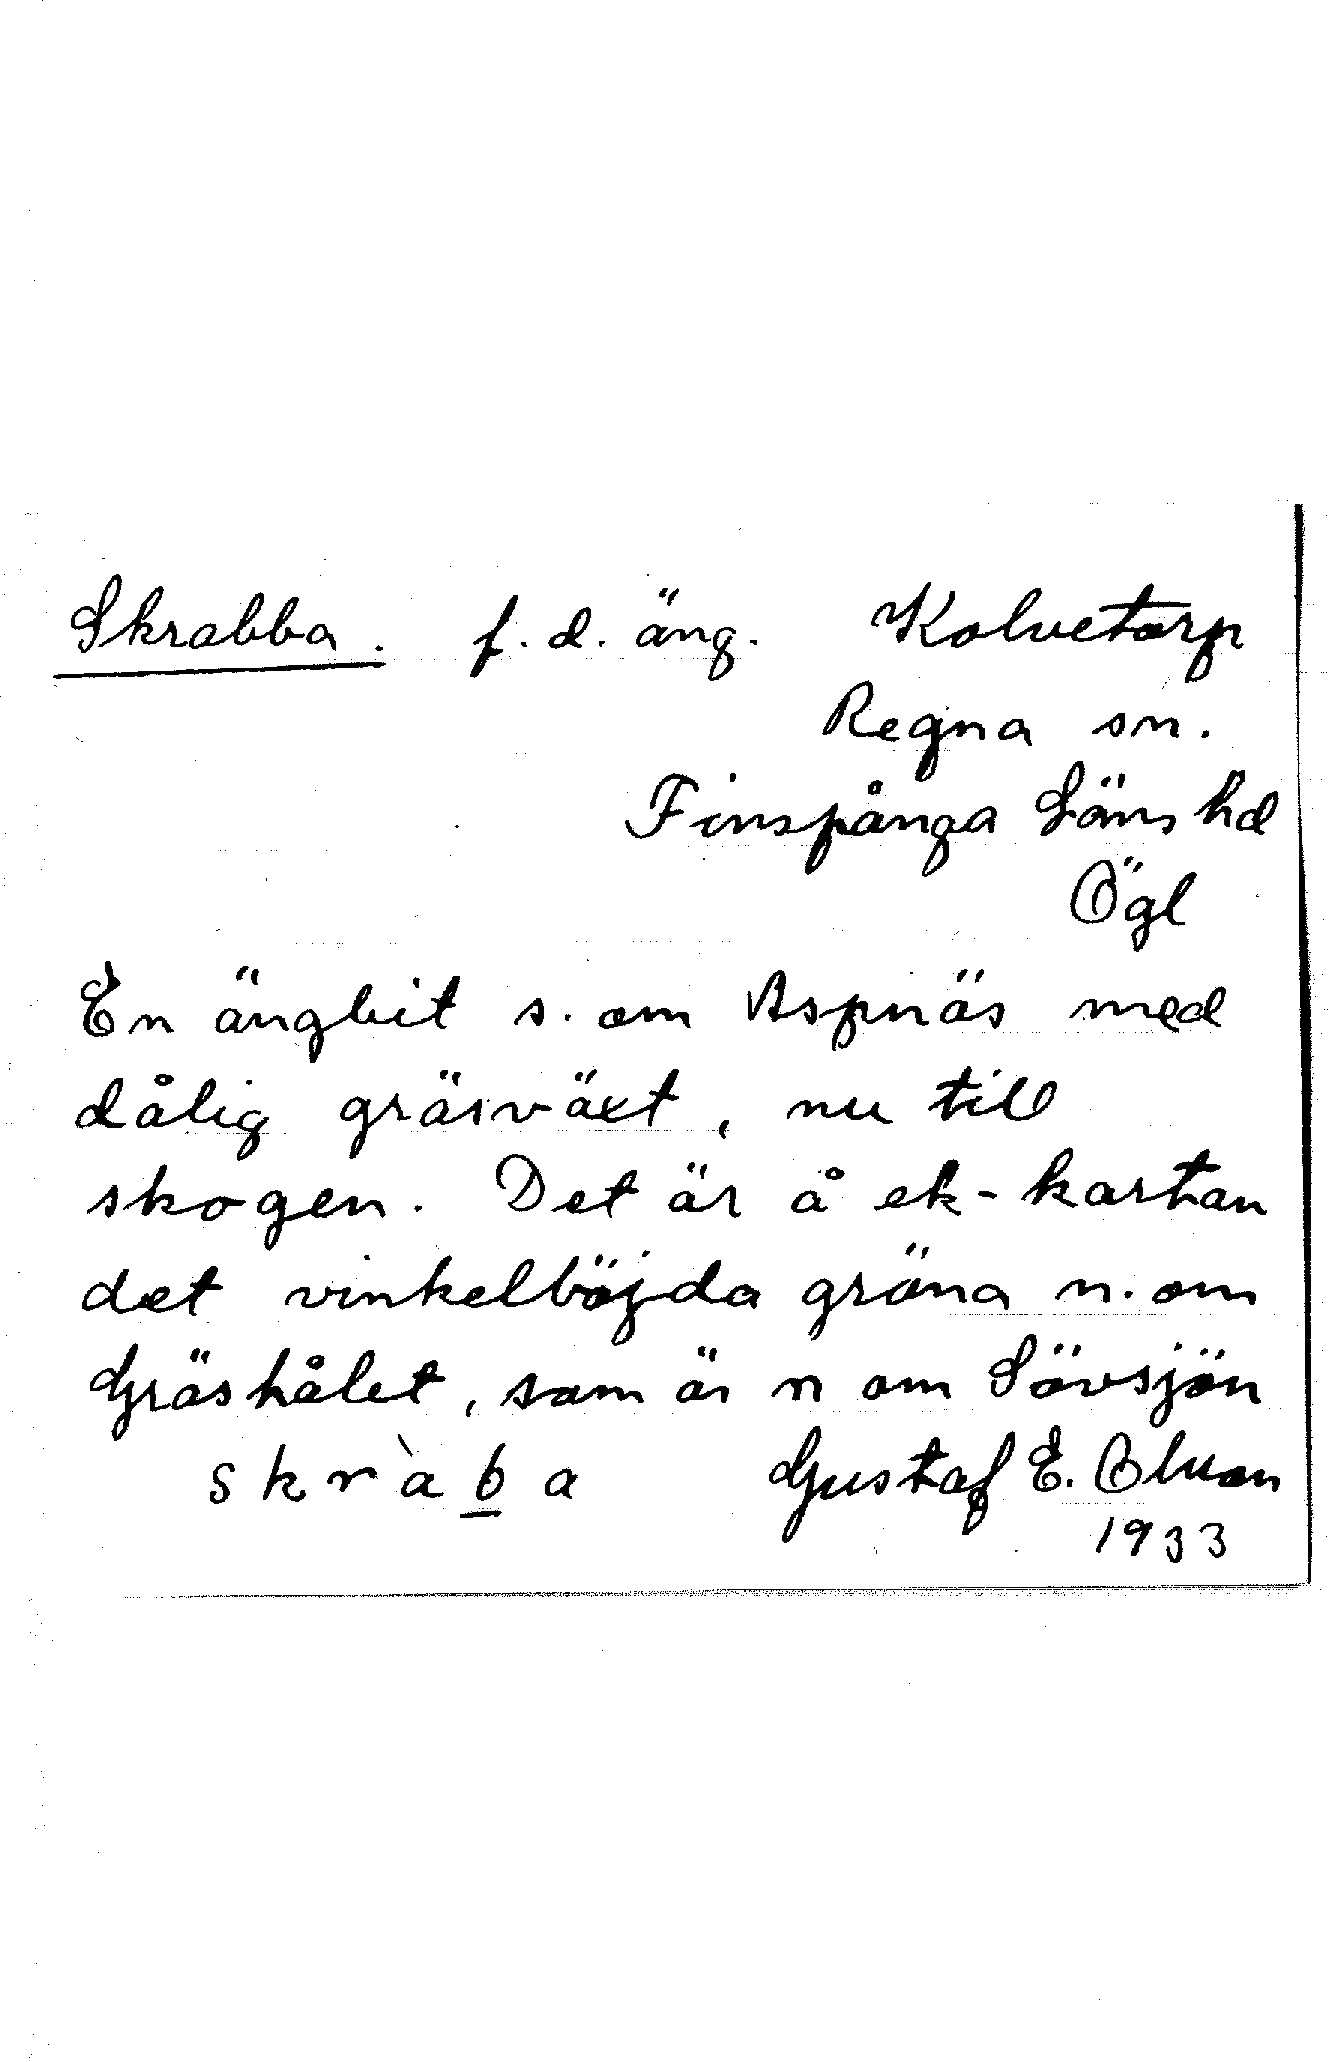 Skrabba. f. d. äng. Kolvetorp
Regna sn.
Finspånga Läns hd
Ögl
En ängbit s. om Aspnäs med
dålig gräsväxt, nu till
skogen. Det är å ek-kartan
det vinkelböjda gröna n. om
Gräshålet, som är n om Sövsjön
skràba Gustaf E. Olson
1933